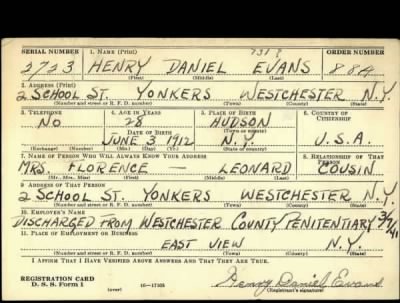 SERIAL NUMBER 1. NAME (Print) ORDER NUMBER
2723 HENRY DANIEL EVANS 884
(First) (Middle) (Last)
2. ADDRESS (Print)
2 SCHOOL ST. YONKERS WESTCHESTER N.Y.
(Number and street or R. F. D. number) (Town) (County) (State)
3. TELEPHONE 4. AGE IN YEARS 5. PLACE OF BIRTH 6. COUNTRY OF CITIZENSHIP
NO 28 HUDSON
DATE OF BIRTH (Town or county)
JUNE 3 1912 N.Y. U.S.A.
(Exchange) (Number) (Mo.) (Day) (Yr.) (State or country)
7. NAME OF PERSON WHO WILL ALWAYS KNOW YOUR ADDRESS 8. RELATIONSHIP OF THAT PERSON
MRS FLORENCE — LEONARD COUSIN
(Mr., Mrs., Miss) (First) (Middle) (Last)
9. ADDRESS OF THAT PERSON
2 SCHOOL ST. YONKERS WESTCHESTER N.Y.
(Number and street or R. F. D. number) (Town) (County) (State)
10. EMPLOYER'S NAME
DISCHARGED FROM WESTCHESTER COUNTY PENITENTIARY 3/7/41
11. PLACE OF EMPLOYMENT OR BUSINESS
EAST VIEW N.Y.
(Number and street or R. F. D. number) (Town) (County) (State)
I AFFIRM THAT I HAVE VERIFIED ABOVE ANSWERS AND THAT THEY ARE TRUE.
REGISTRATION CARD
D. S. S. Form 1 (over) Henry Daniel Evans
(Registrant's signature)